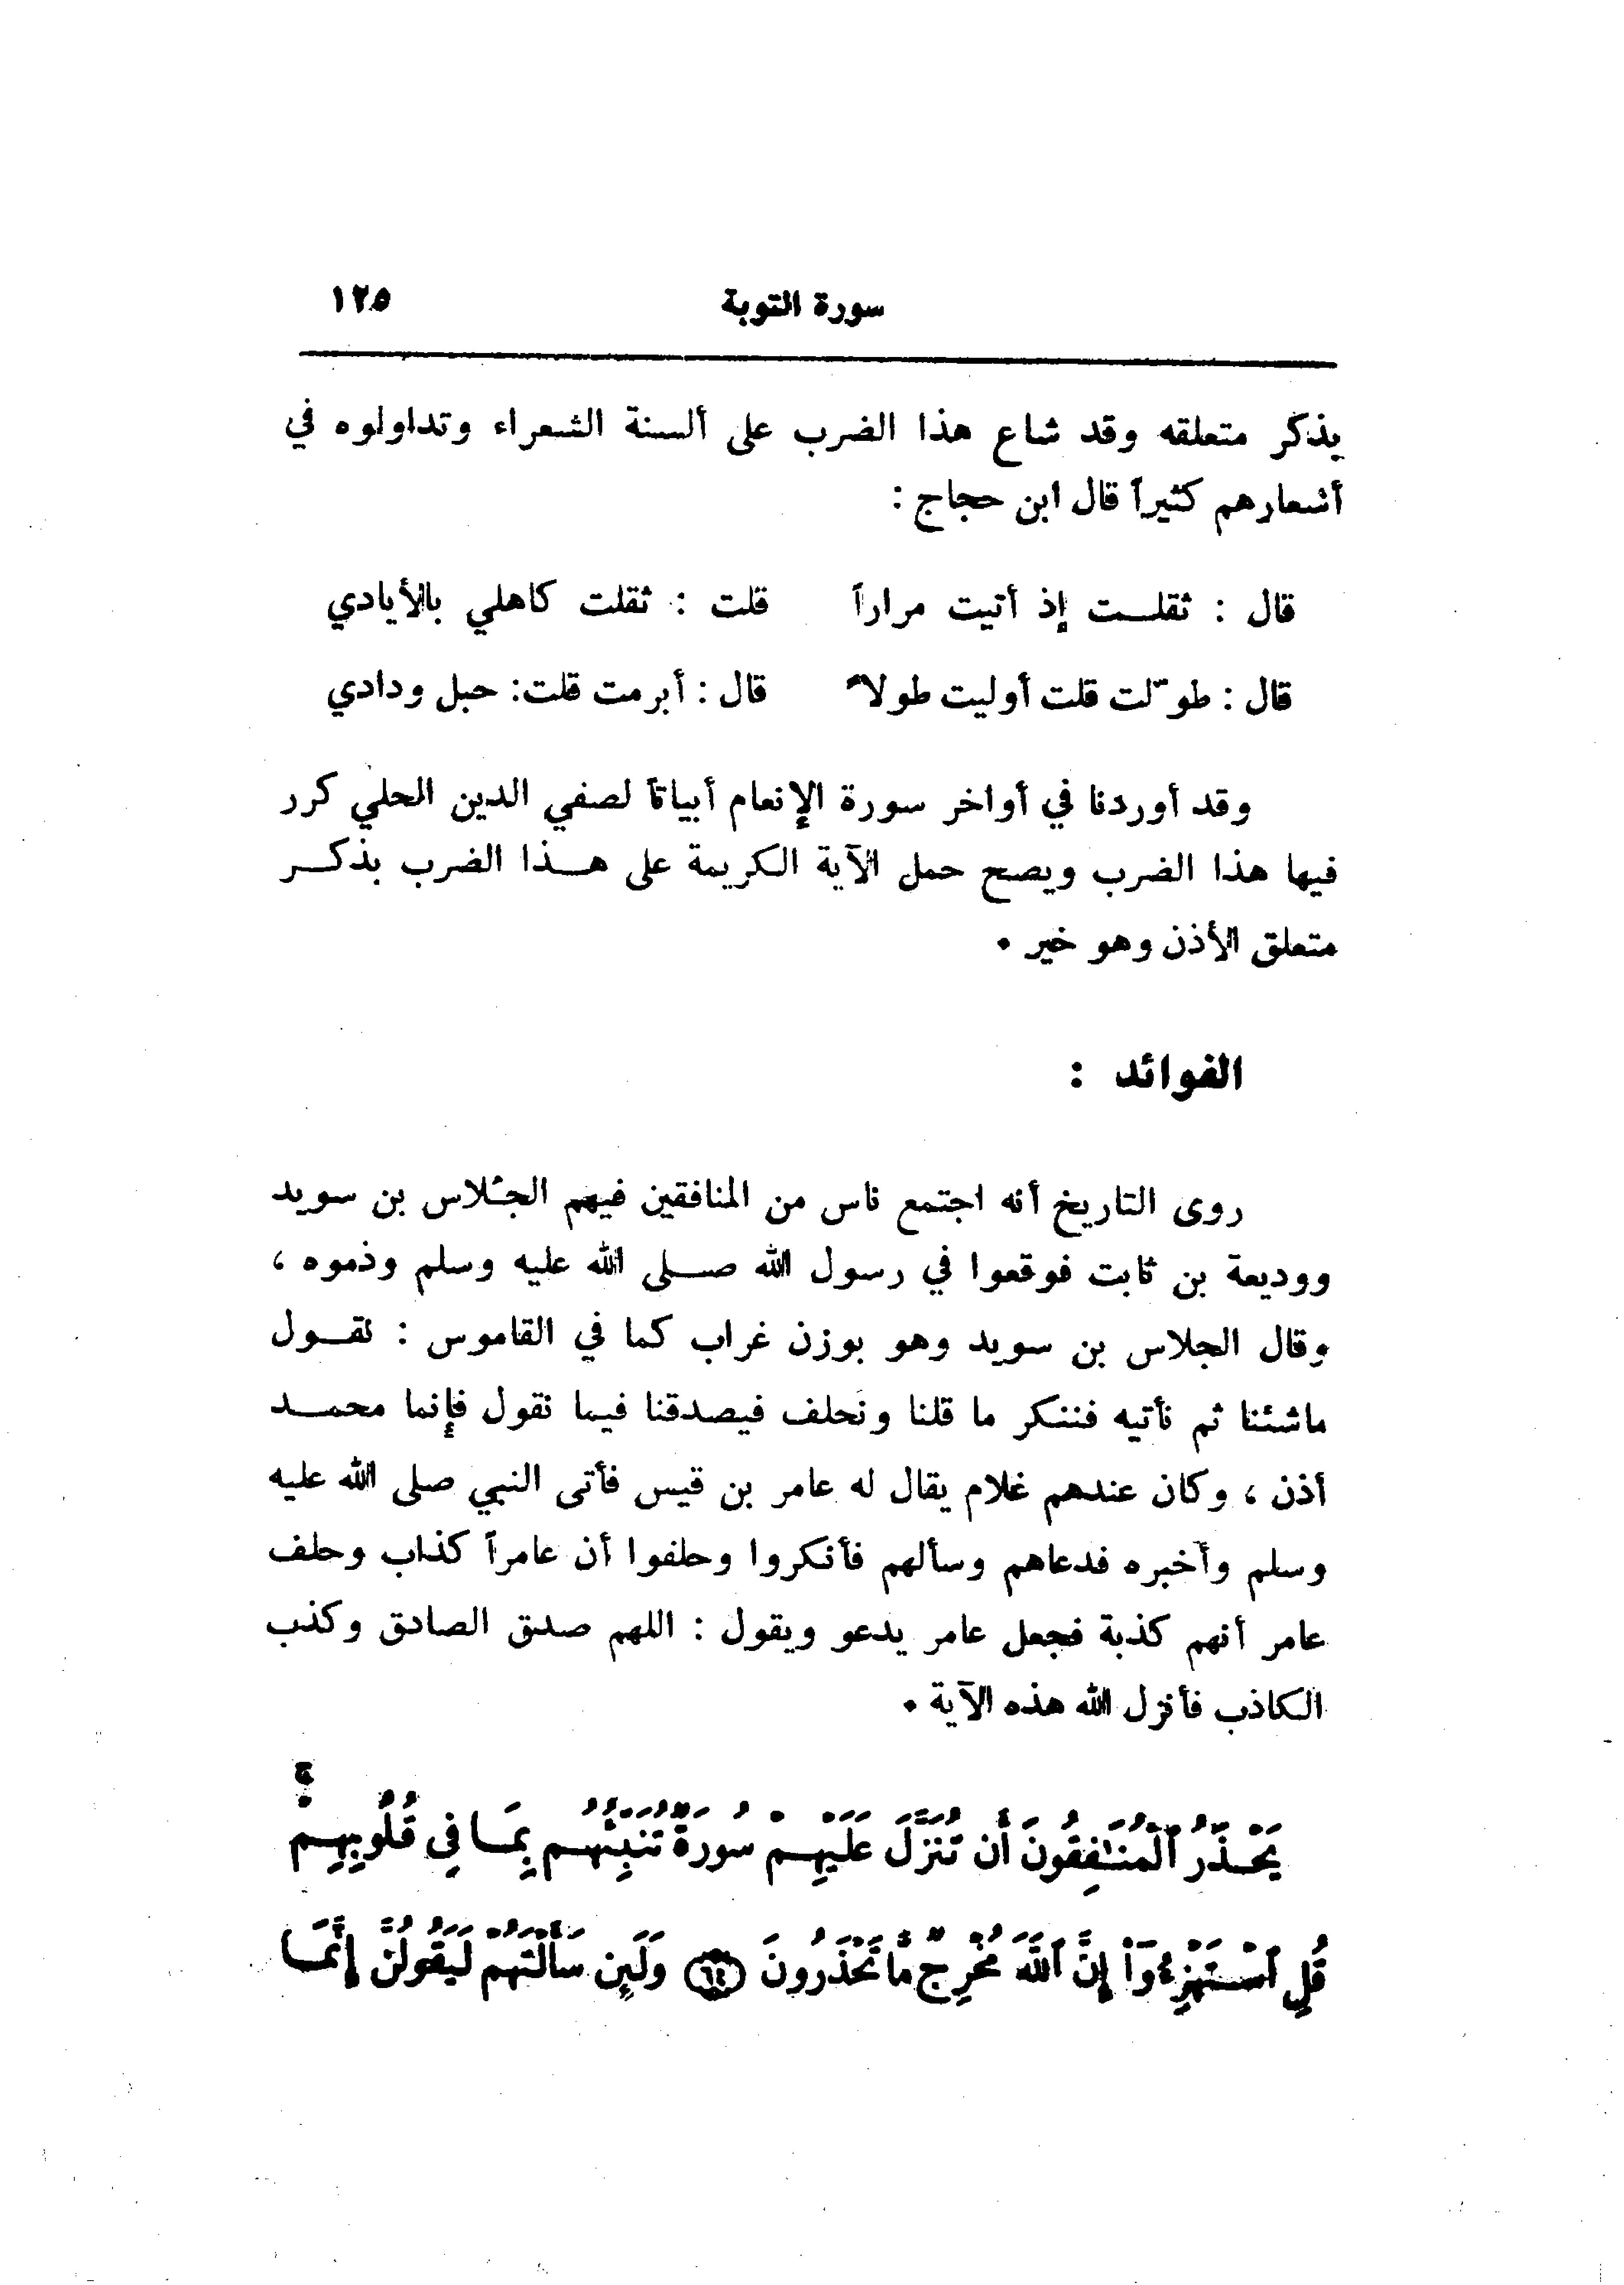 سورة التوبة ١٢٥
يذكر متعلقه وقد شاع هذا الضرب على ألسنة الشعراء وتداولوه في
أشعارهم كثيراً قال ابن حجاج :
قال : ثقلـت إذ أتيت مراراً قلت : ثقلت كاهلي بالأيادي
قال : طوّلت قلت أوليت طولاً قال : أبرمت قلت: حبل ودادي
وقد أوردنا في أواخر سورة الإنعام أبياتاً لصفي الدين الحلي كرر
فيها هذا الضرب ويصح حمل الآية الكريمة على هـذا الضرب بذكـر
متعلق الأذن وهو خير .
الفوائد :
روى التاريخ أنه اجتمع ناس من المنافقين فيهم الجُلاس بن سويد
ووديعة بن ثابت فوقعوا في رسول الله صـلى الله عليه وسلم وذموه ،
وقال الجلاس بن سويد وهو بوزن غراب كما في القاموس : نقـول
ماشئنا ثم نأتيه فننكر ما قلنا ونحلف فيصدقنا فيما نقول فإنما محمـد
أذن ، وكان عندهم غلام يقال له عامر بن قيس فأتى النبي صلى الله عليه
وسلم وأخبره فدعاهم وسألهم فأنكروا وحلفوا أن عامراً كذاب وحلف
عامر أنهم كذبة فجعل عامر يدعو ويقول : اللهم صدق الصادق وكذب
الكاذب فأنزل الله هذه الآية .
يَحْذَرُ ٱلْمُنَٰفِقُونَ أَن تُنَزَّلَ عَلَيْهِمْ سُورَةٌ تُنَبِّئُهُم بِمَا فِى قُلُوبِهِمْ ۚ
قُلِ ٱسْتَهْزِءُوٓا۟ إِنَّ ٱللَّهَ مُخْرِجٌ مَّا تَحْذَرُونَ ﴿٦٤﴾ وَلَئِن سَأَلْتَهُمْ لَيَقُولُنَّ إِنَّمَا